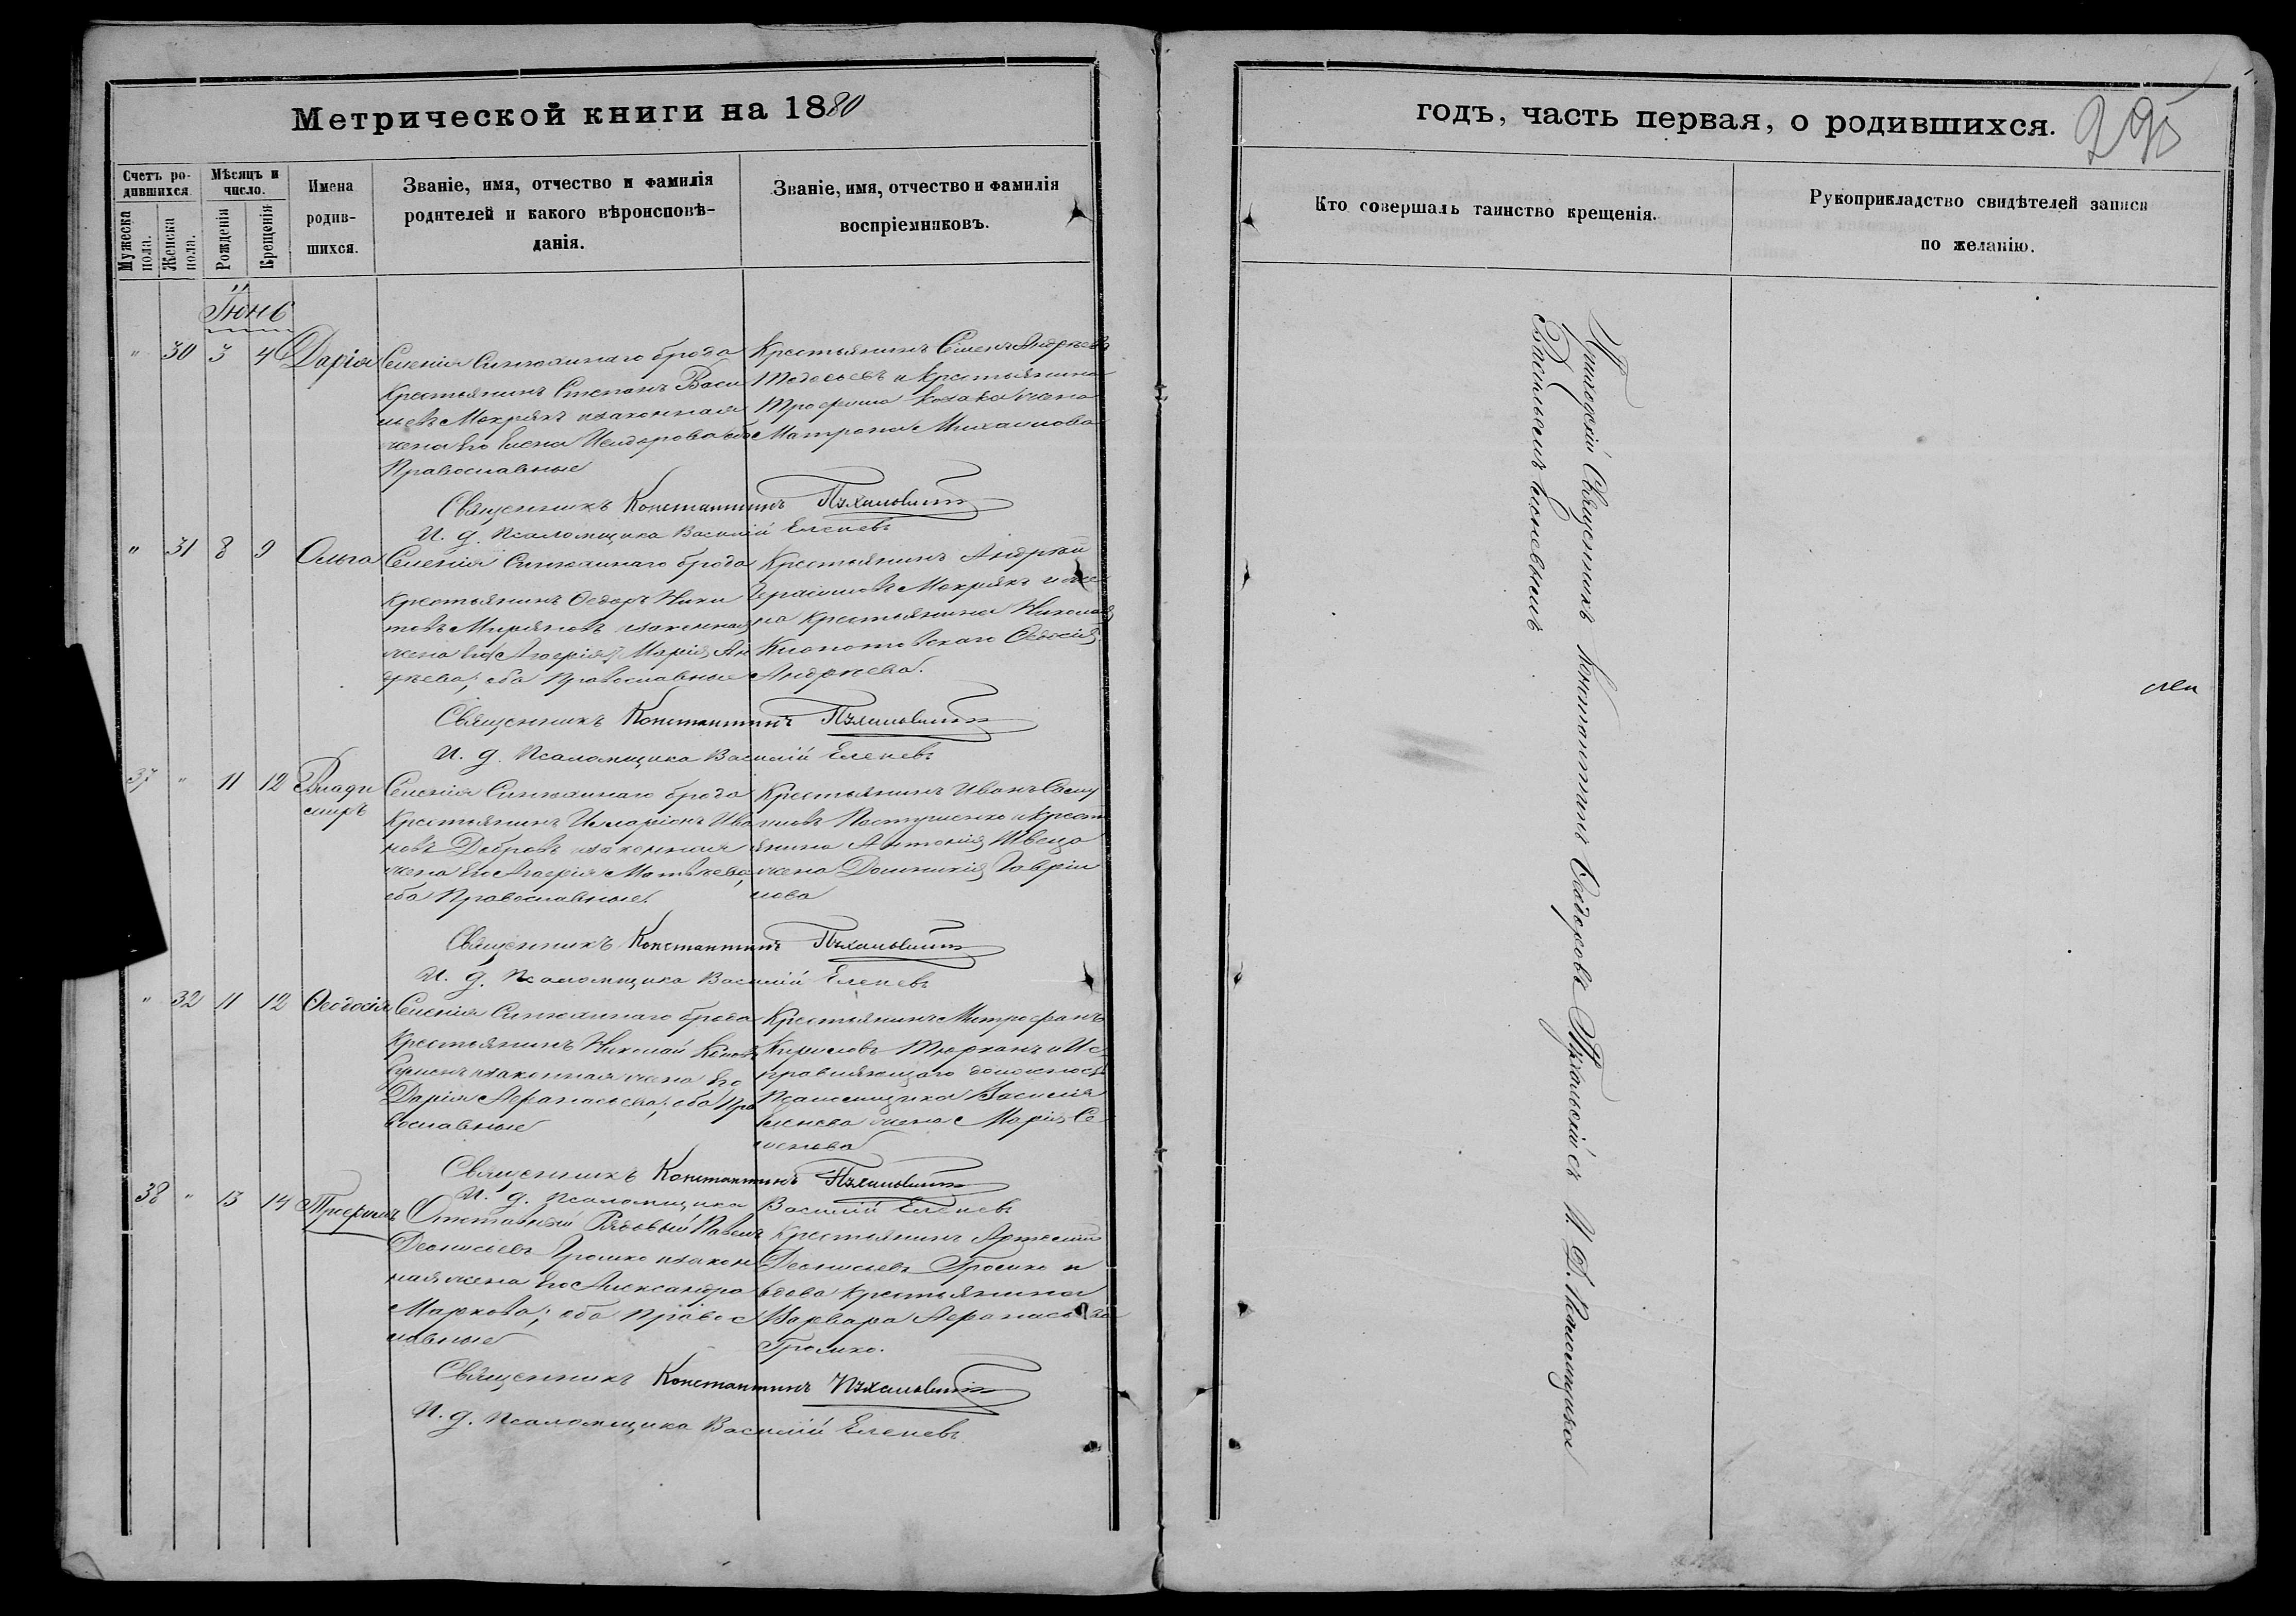 Метрической книги на 1880
Счетъ ро-
дившихся.
Мужеска пола.
Женска пола.
Мѣсяцъ и
число.
Рожденія
Крещенія
Имена
родив-
шихся.
Званіе, имя, отчество и фамилія
родителей и какого вѣроисповѣ-
данія.
Званіе, имя, отчество и фамилія
воспріемниковъ.
Іюнь
" 30 3 4 Дарія
Селенія Синюхинаго брода
Крестьянинъ Степанъ Васи
льевъ Мокрякъ и законная
жена его Елена Исидорова оба
Православные
Крестьянинъ Сѵмеонъ Андреевъ
и крестьянина
Трофима Козака жена
Матрона Михаилова
Священникъ Константинъ Пѣхальскій
И. д. Псаломщика Василій Еленевъ
" 31 8 9 Ольга
Селенія Синюхинаго брода
Крестьянинъ Ѳедоръ Ники
товъ Мирзяковъ и законная
жена его Марія Ан
дреева; оба Православные
Крестьянинъ Андрей
Герасимовъ Мокрякъ и же
на крестьянина Николая
Клопотовскаго Ѳеодосія
Андреева.
Священникъ Константинъ Пѣхальскій
И. д. Псаломщика Василій Еленевъ
37 " 11 12 Влади
миръ
Селенія Синюхинаго брода
Крестьянинъ Иларіонъ Ива
новъ Добровъ и законная
жена его Агафія Матвѣева,
оба Православные.
Крестьянинъ Иванъ Саму
иловъ Пастушенко и крест
янина Антонія Швеца
жена Домникія Гаврии
лова
Священникъ Константинъ Пѣхальскій
И. д. Псаломщика Василій Еленевъ
" 32 11 12 Ѳеодосія
Селенія Синюхинаго брода
Крестьянинъ Николай
и законная жена его
Дарія Афанасьева; оба Пра
вославные
Крестьянинъ Митрофанъ
Кириловъ Тюрханъ и Ис
правляющаго должность
Псаломщика Василія
Еленева жена Марія Се
менова
Священникъ Константинъ Пѣхальскій
И. д. Псаломщика Василій Еленевъ
38 " 13 14 Трофимъ
Отставной Рядовый Павелъ
Деонисіевъ Громко и закон
ная жена его Александра
Маркова; оба Правос
лавные
Крестьянинъ Артемій
Деонисіевъ Громко и
вдова крестьянина
Варвара Афанасьева
Громко.
Священникъ Константинъ Пѣхальскій
И. д. Псаломщика Василій Еленевъ
годъ, часть первая, о родившихся.
295
Кто совершалъ таинство крещенія.
Рукоприкладство свидѣтелей записи
по желанію.
Приходскій Священникъ Константинъ Ѳеодоровъ Пѣхальскій съ И. Д. Псаломщика
Василіемъ Еленевымъ